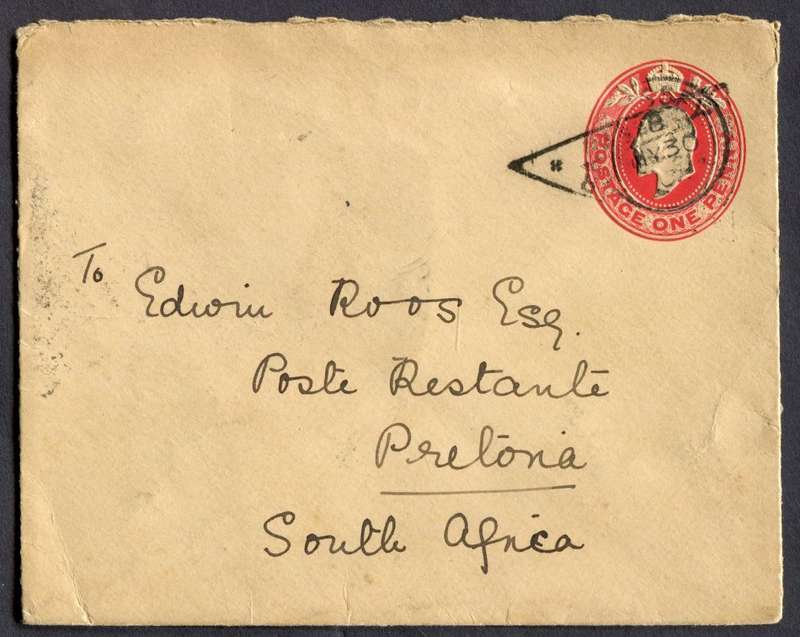 POSTAGE ONE PENNY
To
Edwin Roos Esq.
Poste Restante
Pretoria
South Africa